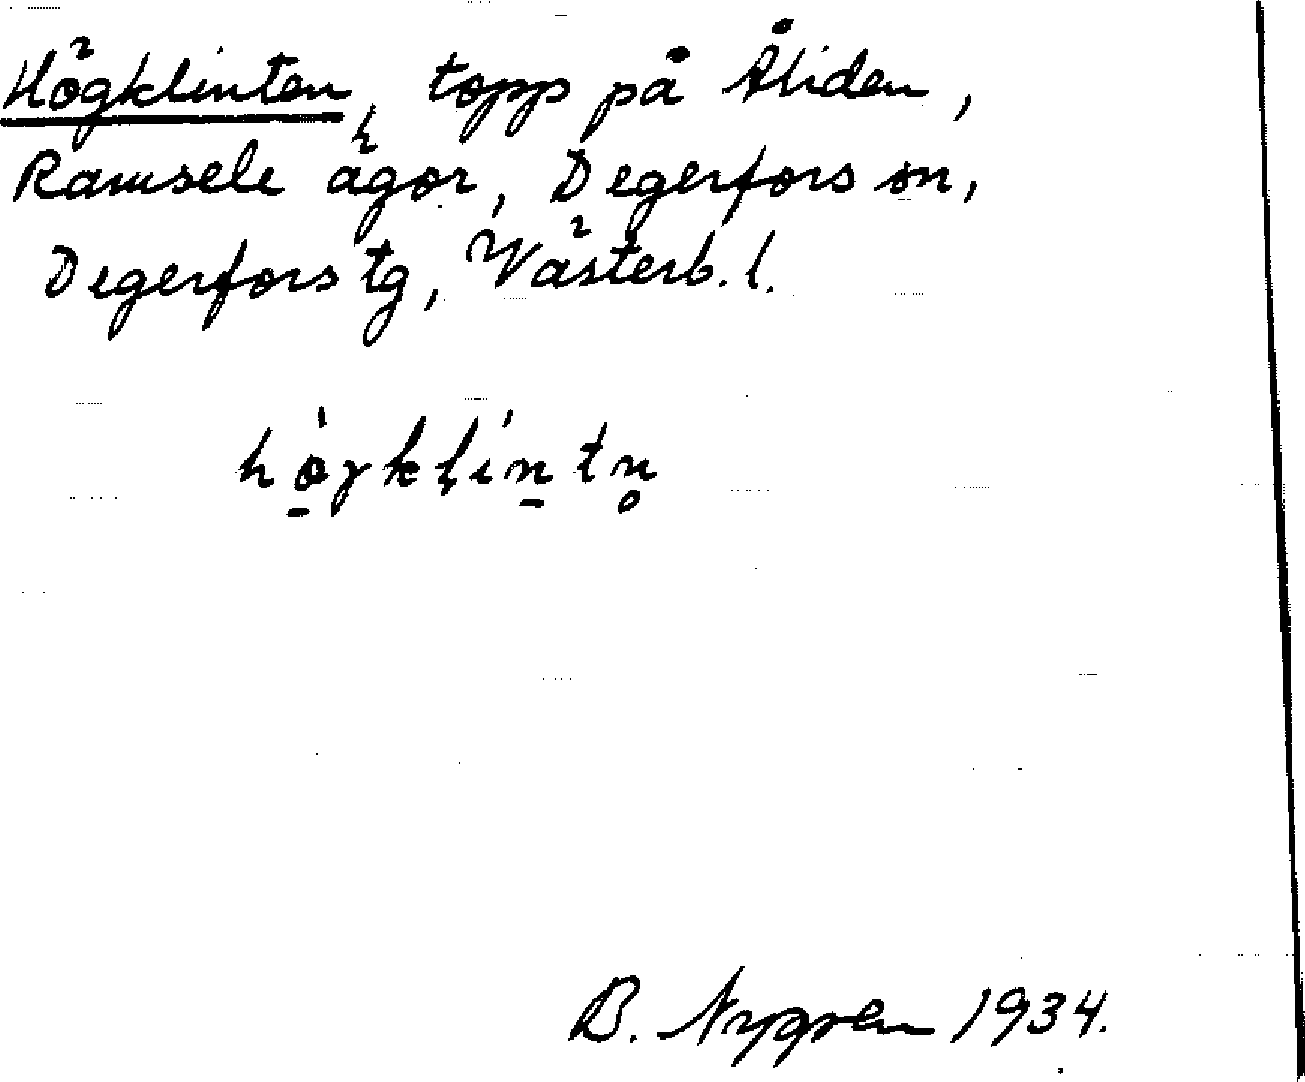 Högklinten, topp på Åliden,
Ramsele ägor, Degerfors sn,
Degerfors tg, Västerb. l.
hö̱́gkli̍ṉtn̥
B. Nygren 1934.